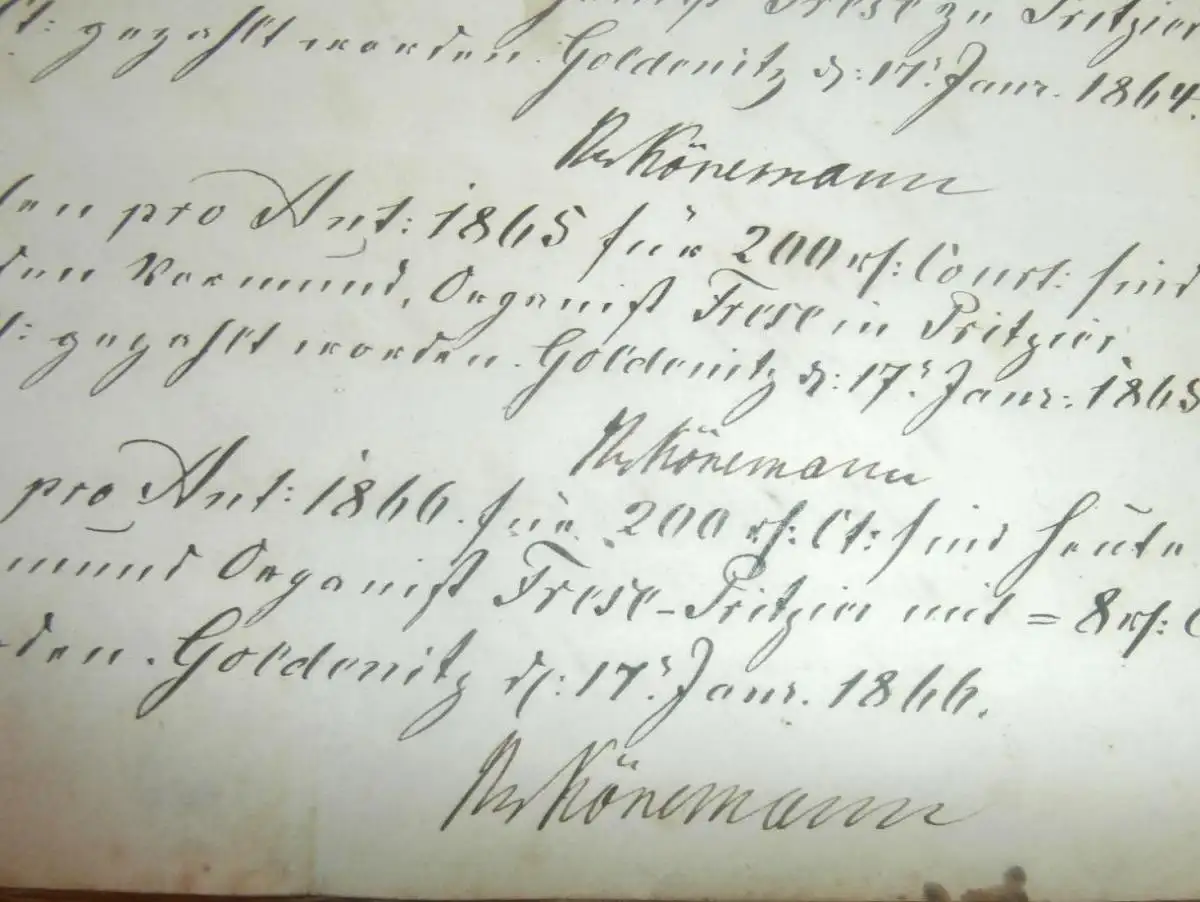 Frese zu Pritzier
gezahlt worden. Goldenitz d: 17t Janr. 1864.
Könemann
pro Ant: 1865 für 200 rf: Court: sind
den Vormund, Organist Frese in Pritzier,
gezahlt worden. Goldenitz d: 17t Janr: 1865
Könemann
pro Ant: 1866. für 200 rf: Ct: sind heute
mund Organist Frese-Pritzier mit = 8 rf:
den. Goldenitz d: 17t Janr. 1866.
Könemann